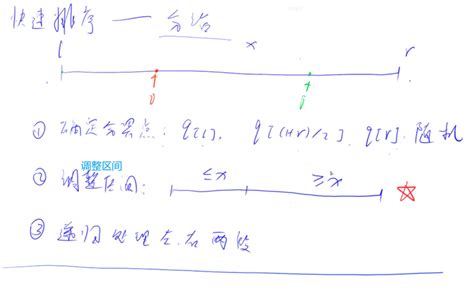 快速排序 —— 分治
l x r
i j
① 确定分界点: q[l], q[(l+r)/2], q[r]. 随机
调整区间
② 调整区间: ≤x ≥x ☆
③ 递归处理左右两段